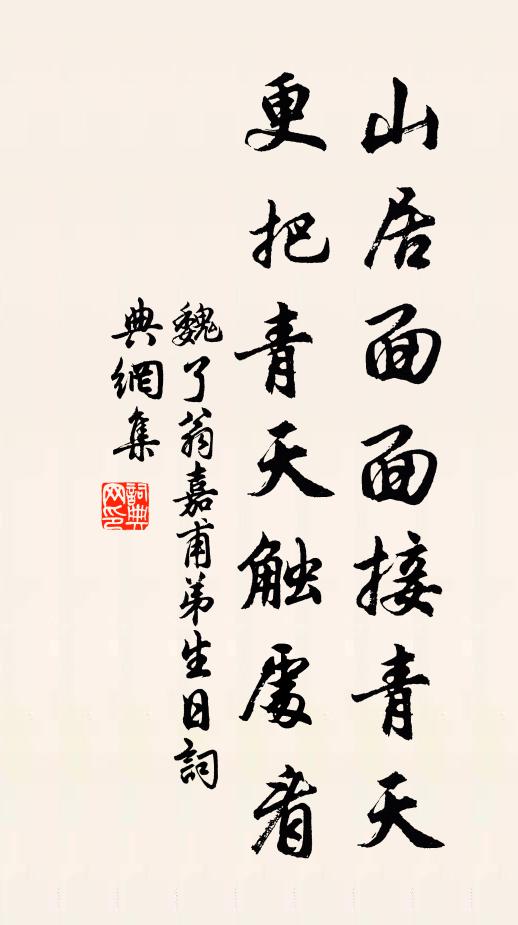 山居面面接青天
更把青天触處看
魏了翁嘉甫弟生日詞
典網集
詞典
网印